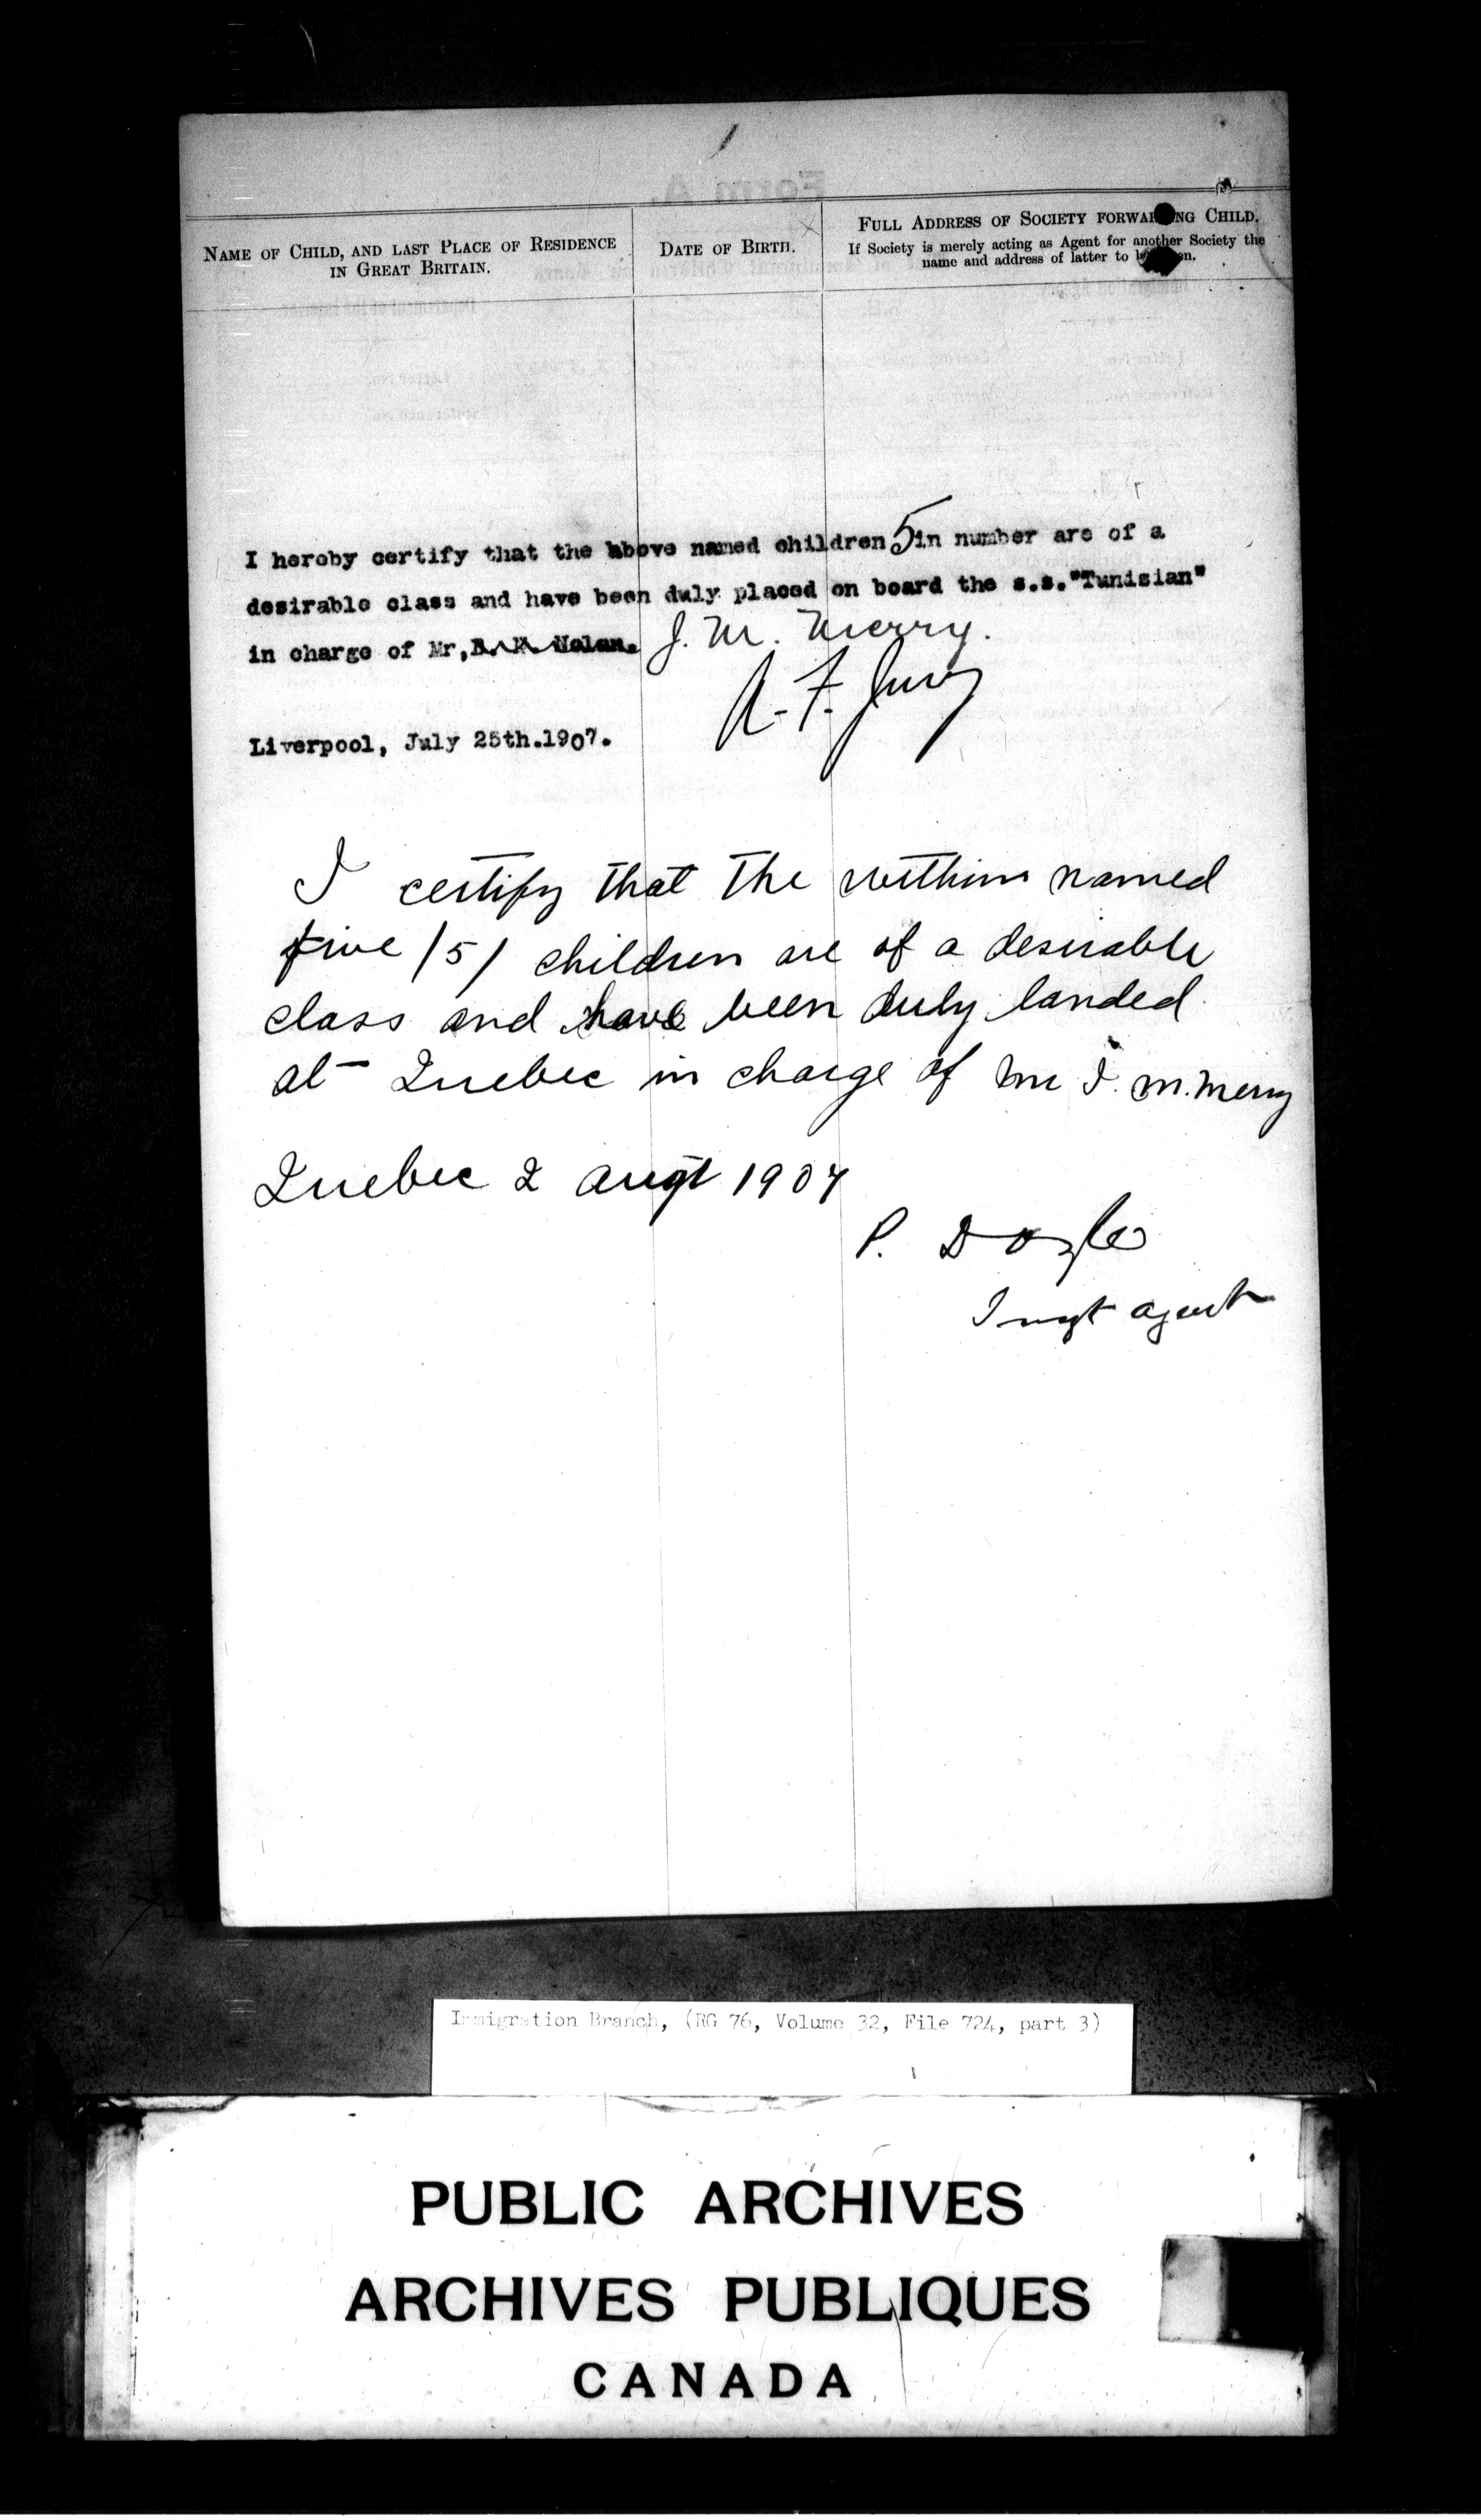 NAME OF CHILD, AND LAST PLACE OF RESIDENCE
IN GREAT BRITAIN.
DATE OF BIRTH.
FULL ADDRESS OF SOCIETY FORWARDING CHILD.
If Society is merely acting as Agent for another Society the
name and address of latter to be given.
I hereby certify that the above named children 5 in number are of a
desirable class and have been duly placed on board the s.s."Tunisian"
in charge of Mr, J. M. Merry.
A. F. Jury
Liverpool, July 25th.1907.
I certify that the within named
five /5/ children are of a desirable
class and have been duly landed
at Quebec in charge of Mr J. M. Merry
Quebec 2 Augt 1907
P. Doyle
Imgt agent
Immigration Branch, (RG 76, Volume 32, File 724, part 3)
PUBLIC ARCHIVES
ARCHIVES PUBLIQUES
CANADA